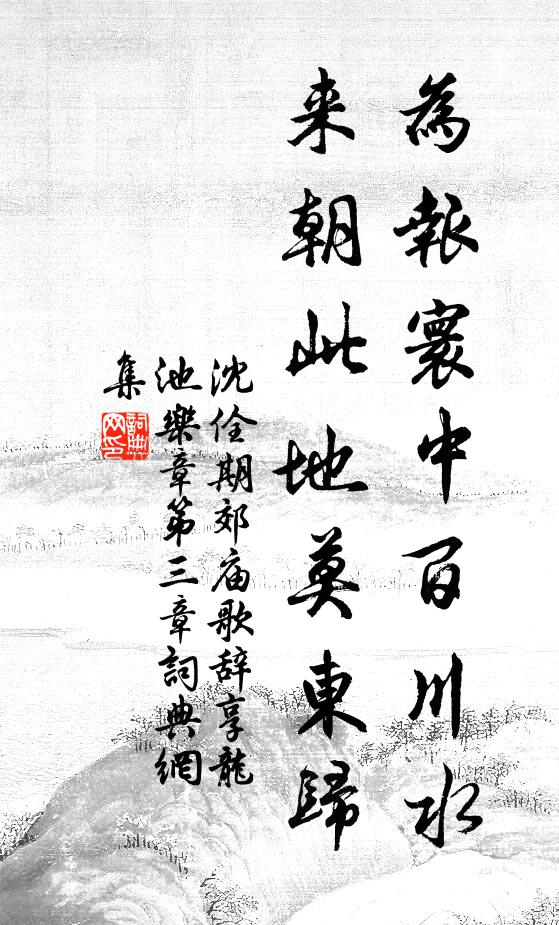 為報寰中百川水
来朝此地莫東歸
沈佺期郊庙歌辞享龍
池樂章第三章詞典網
集
詞典
网印